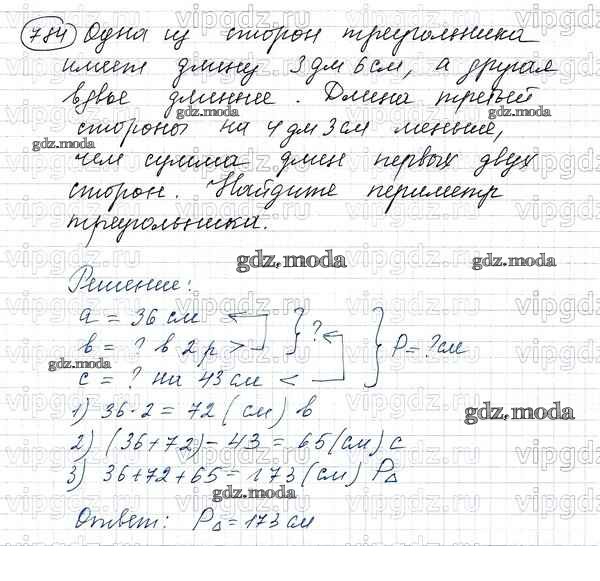 784 Одна из сторон треугольника
имеет длину 3 дм 6 см, а другая
вдвое длиннее. Длина третьей
стороны на 4 дм 3 см меньше,
чем сумма длин первых двух
сторон. Найдите периметр
треугольника.
Решение:
a = 36 см
в = ? в 2 р > } ? } P = ? см
c = ? на 43 см <
1) 36·2 = 72 (см) в
2) (36+72)-43 = 65 (см) с
3) 36+72+65 = 173 (см) P△
Ответ: P△ = 173 см
gdz.moda
gdz.moda
gdz.moda
gdz.moda
gdz.moda
gdz.moda
gdz.moda
vipgdz.ru